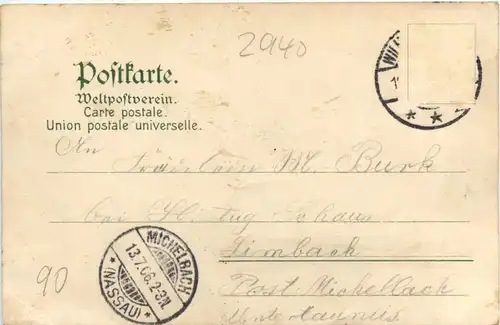 2940
Postkarte.
Weltpostverein.
Carte postale.
Union postale universelle.
An
Fräulein M. Burk
bei H. Aug
Limbach
Post Michelbach
Untertaunus
MICHELBACH
13.7.06.2-3N.
*(NASSAU)*
90